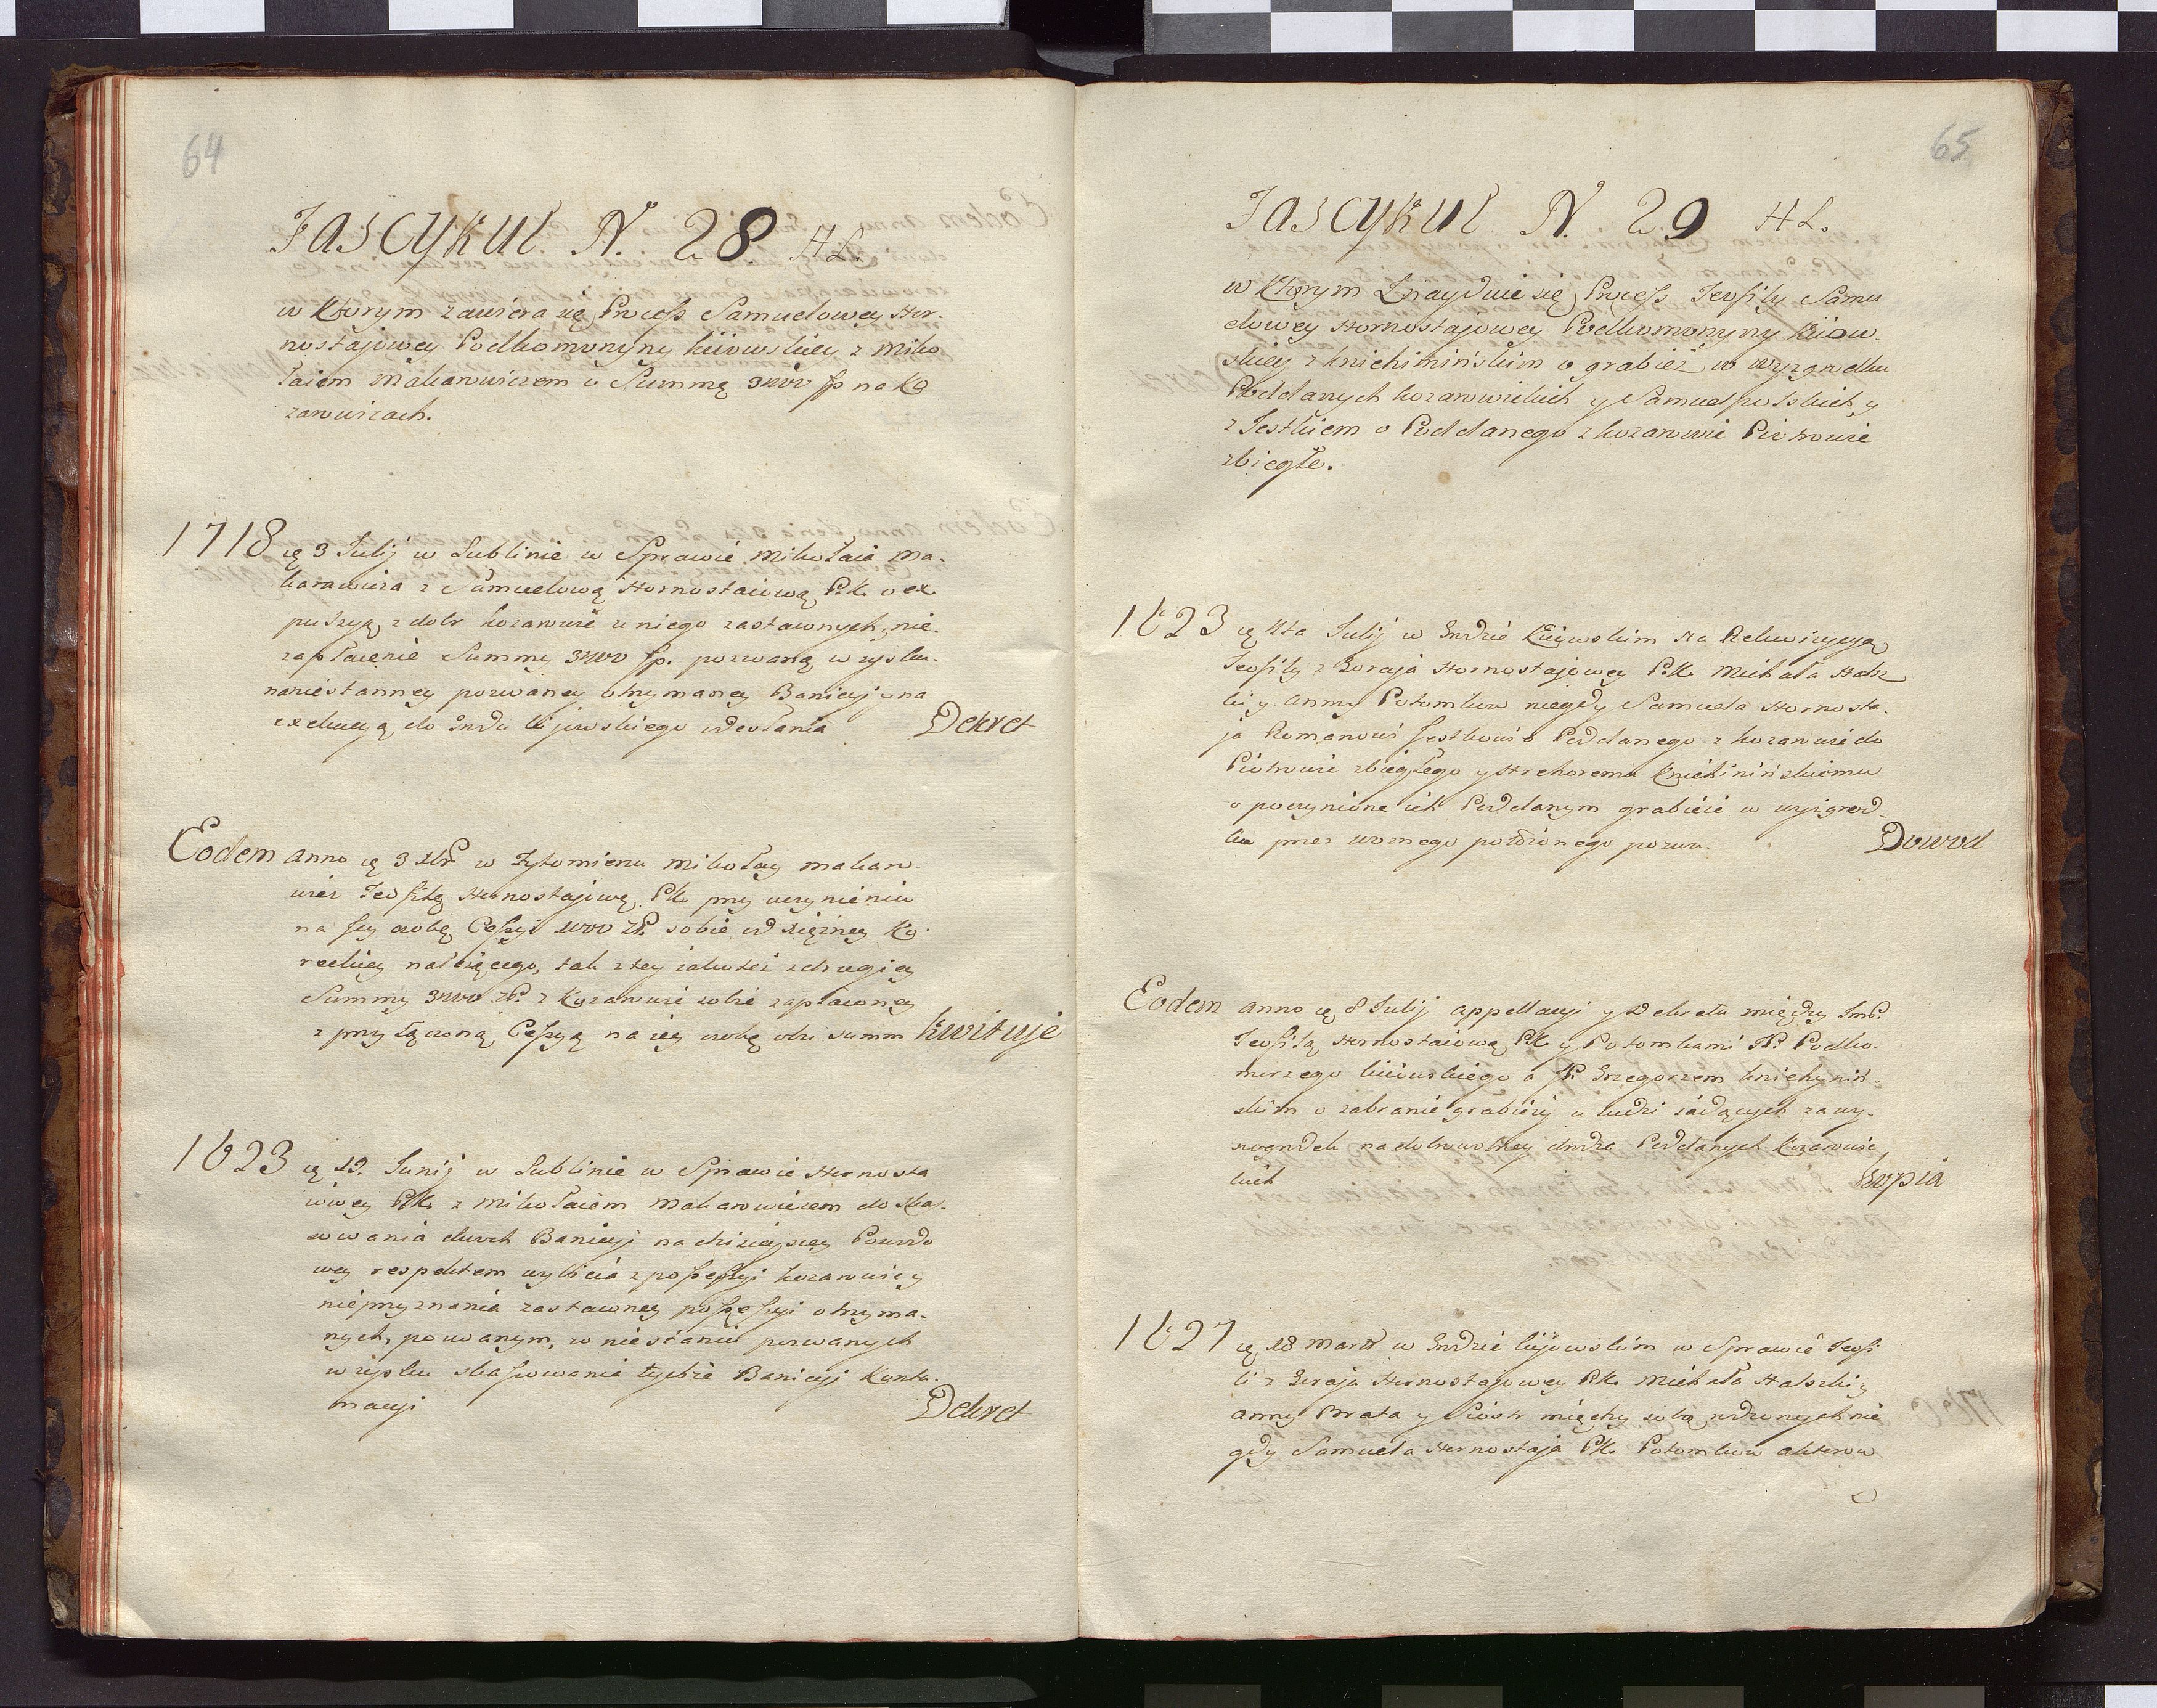 64
Fascykuł N. 28. HL.
w Którym zawiera się Process Samuelowey Hor-
nostajowey Podkomorzyny kiiowskiey z Miko
łaiem Makarowiczem o Summę 3000 fp na Ko
zarowiczach.
1718 ię 3 Julij w Lublinie w Sprawie Mikołaia Ma-
karowicza z Samuelową Hornostaiową P.K. o ex
pulsyą z dobr kozarowic u niego zastawnych, nie-
zapłacenie Summy 3000 fp. pozwaną w zysku.
naniestanney pozwaney otrymaney Banicyi ona
exekucyą do Grodu kijowskiego odesłania Dekret
Eodem anno ię 3 w Żytomierzu Mikołay Makaro-
wicz Teofilę Hornostajową Pk. przy uczynieniu
na iey osobę Cessyi 1000 zł. sobie od xiężney Ko-
reckiey należącego, tak z tey iako też z drugiey
Summy 3000 zł. z Kozarowic sobie zapłaconey
z przyłączoną Cessyą na iey osobę obu summ Kwituje
1623 ię 12. Junij w Lublinie w Sprawie Hornosta
iowey Pk. z Mikołaiem Makarowiczem do ska-
sowania dwoch Banicyi na dzisieyszey Powodo
wey respektem wybicia z possessyi kozarowic y
nieprzyznania zastawney possessyi otrzyma-
nych, pozwanym, w niestaniu pozwanych
w zysku skassowania tychże Banicyi Kontu-
macyi Dekret
65
Fascykuł N. 29 HL.
w Ktorym Znayduie się Process Teofily Samu
elowey Hornostajowey Podkomorzyny Kiiow-
skiey z knichinińskim o grabież w Wyzgrodku
Poddanych kozarowickich y Samuelpolskich y
z Jestkiem o Poddanego z kozarowic Piotrowic
zbiegłe.
1623 ię Julij w Grodzie Kiiowskim Na Rekwizycyą
Teofily z Goraja Hornostajowey P.K. Michała Halsz
ki y Anny Potomkow niegdy Samuela Hornosta-
ja Romanowi Jestkowi o Poddanego z kozarowic do
Piotrowic zbiegłego y Hrehoremu Knichinińskiemu
o poczynione ich Poddanym grabieże w wyżgrod-
ku przez woznego położonego pozwu. Dowod
Eodem anno ię 8 Julij appellacyi y Dekretu między ImP.
Teofilą Hornostaiową Pk. y Potomkami JP. Podko-
morzego kiiowskiego a JP. Grzegorzem knichyniń-
skim o zabranie grabieży u ludzi iadących za wy-
szogrodek na dobrowolney drodze Poddanych Kozarowic
kich Kopia
1627 ię 18 Marti w Grodzie kijowskim w Sprawie Teofi
li z Goraja Hornostajowey Pk. Michała Halszki y
Anny Brata y Siostr między sobą rodzonych nie
gdy Samuela Hornostaja Pk. Potomkow aktorow